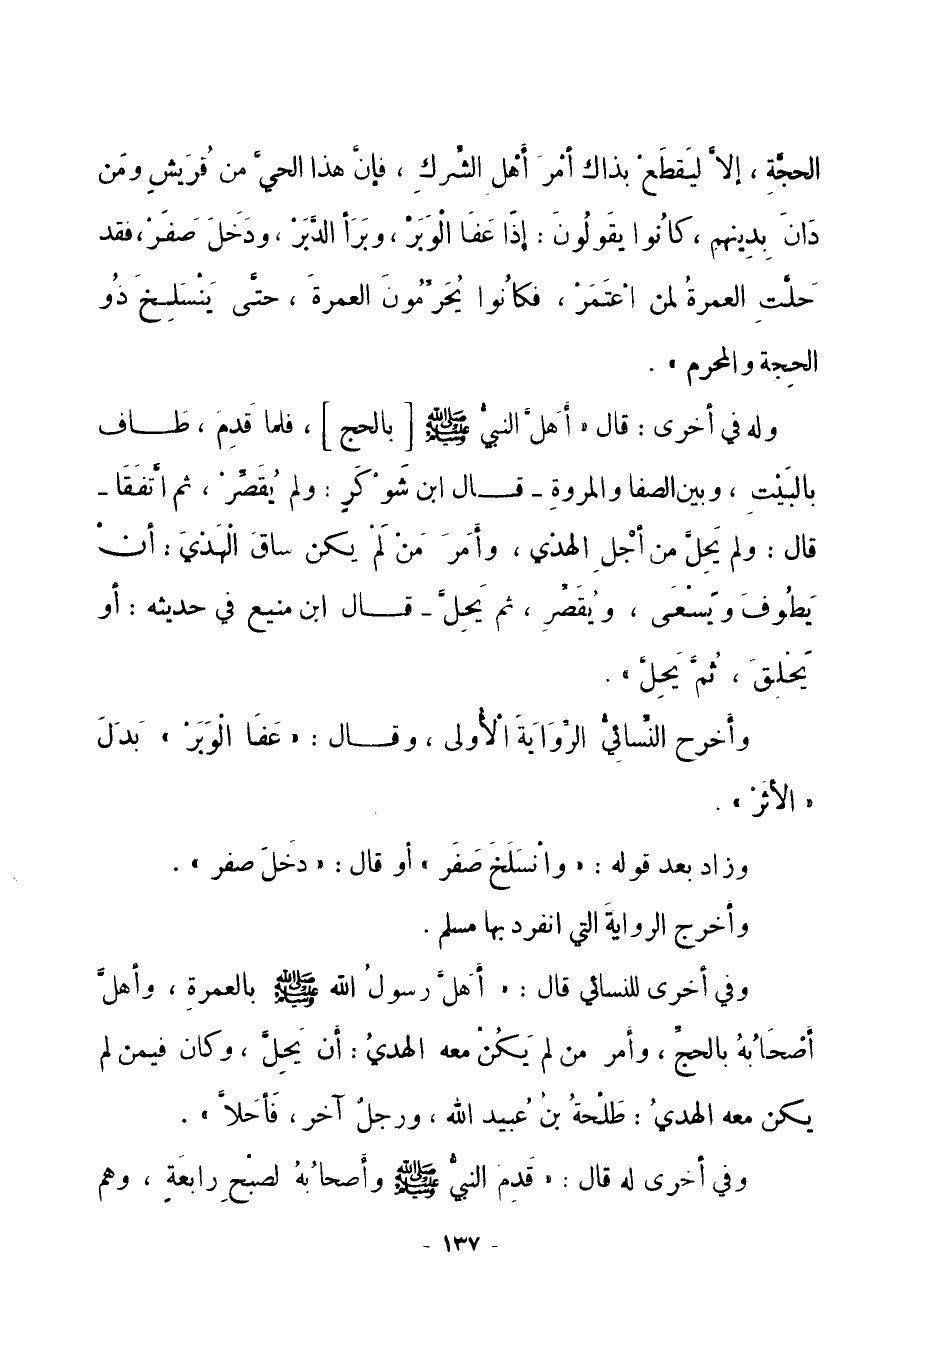 الحجَّةِ ، إلاَّ ليَقطَعَ بذاك أمْرَ أَهْلِ الشِّركِ ، فإنَّ هذا الحيَّ من قُريَشٍ ومَن
دَانَ بِدِينِهم ، كَانُوا يقولُونَ : إذَا عَفَا الْوَبَرْ ، وبَرَأَ الدَّبَرْ ، ودَخَلَ صَفَرْ ، فقد
حَلَّتِ العمرةُ لمن اعْتَمَرْ ، فكانُوا يُحَرِّمُونَ العمرةَ ، حتَّى يَنْسَلِخَ ذُو
الحِجة والمحرم » .
وله في أخرى : قال « أَهَلَّ النبيُّ ﷺ [ بالحج ] ، فلما قَدِمَ ، طَاف
بالبَيْتِ ، وبين الصفا والمروةِ ـ قال ابن شَوْكَرٍ : ولم يُقَصِّرْ ، ثم اتَّفَقَا ـ
قال : ولم يَحِلَّ من أجْلِ الهدْي ، وأَمَرَ مَنْ لَمْ يكن ساقَ الْهَدْيَ : أنْ
يَطُوفَ ويَسْعَى ، ويُقَصِّرِ ، ثم يَحِلَّ ـ قال ابن منيع في حديثه : أو
يَحْلِقَ ، ثُمَّ يَحِلَّ » .
وأخرج النَّسائيُّ الرِّوَايَةَ الْأُولى ، وقال : « عَفَا الْوَبَرْ » بَدَلَ
« الأثَرْ » .
وزاد بعد قوله : « وانْسَلَخَ صَفَر » أو قال : « دخَلَ صفر » .
وأخرج الروايةَ التي انفرد بها مسلم .
وفي أخرى للنسائي قال : « أَهَلَّ رسولُ الله ﷺ بالعمرةِ ، وأهلَّ
أَصْحَابُهُ بالحجِّ ، وأَمر من لم يَكُنْ معه الهديُ : أن يَحِلَّ ، وكان فيمن لم
يكن معه الهديُ : طَلْحَةُ بنُ عُبيد الله ، ورجلٌ آخر ، فَأَحَلاَّ » .
وفي أخرى له قال : « قَدِمَ النبيُّ ﷺ وأَصحابُهُ لصبْحِ رابعَةٍ ، وهم
- ١٣٧ -